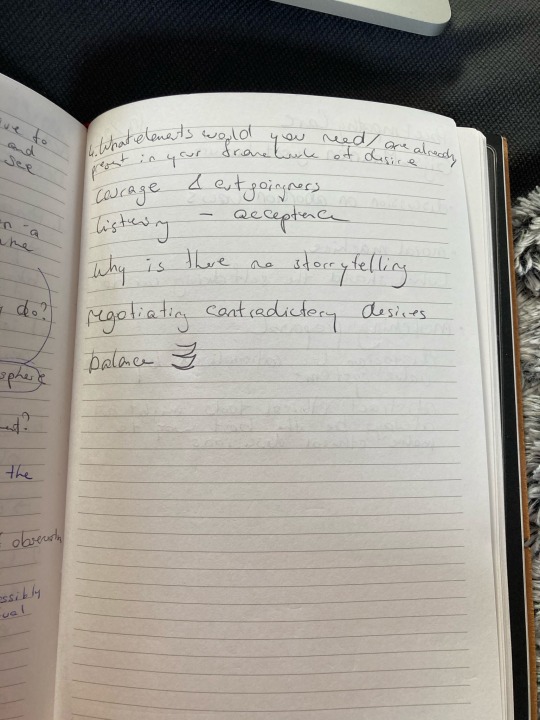 ve to
and
see
do?
the
ssibly
4. What elements would you need/are already
present in your framework of desire
courage & outgoingness
listening - acceptance
why is there no storrytelling
negotiating contradictory desires
balance